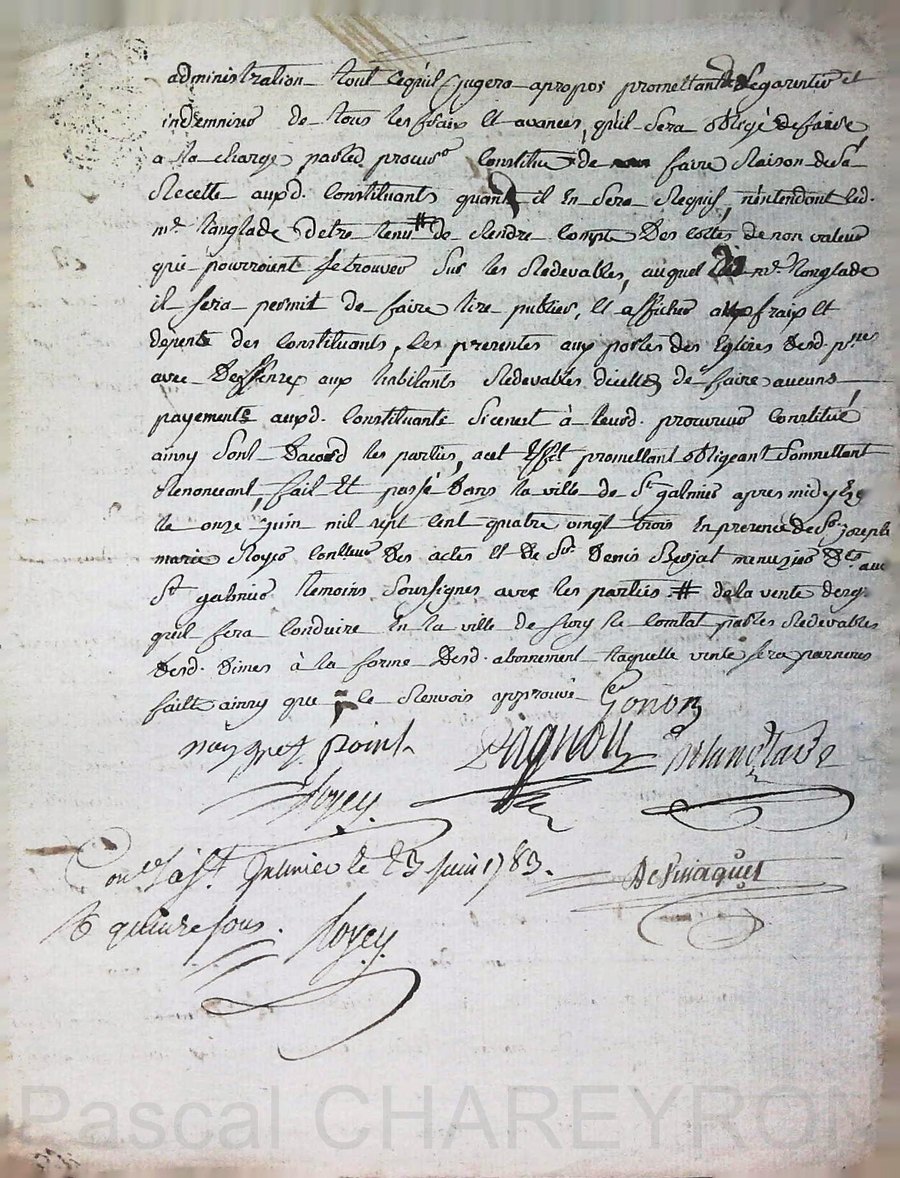 administration tout cequil jugera apropos promettant de legarentir et
indemniser de tous les fraix et avances, quil sera obligé de faire
a la charge par led. procur. constitué de faire raison de sa
Recette auxd. constituants quand il en sera Requis, n'entendant led.
mr. Langlade detre tenu # de Rendre compte des cottes de non valeur
qui pourroient se trouver sur les Redevables, auquel mr. Langlade
il sera permit de faire lire publier, et afficher aux fraix et
depents des constituants, les presentes aux portes des Eglises desd. psses
avec deffences aux habitants Redevables dicelles de faire aucuns
payements auxd. constituants sicenest à leurd. procureur constitué
ainsy sont dacord les parties, acet effet promettant obligeant soumettant
Renoncant, fait et passé dans la ville de St galmier apres midy
le onze juin mil sept cent quatre vingt trois en presence de Sr. joseph
marie Royer conlleur des actes et de Sr. Denis menuzier
St galmier temoins soussignes avec les parties. # de la vente
quil fera conduire en la ville de fory le comtat par les Redevables
desd. dimes à la forme desd. abonnement laquelle vente sera par
faitte ainsy que le Renvois approuvé Gonon
point Pagnon Delanglade
Royer
Conlle a St. Galmier le 23 juin 1783. 
R quinze sous. Royer